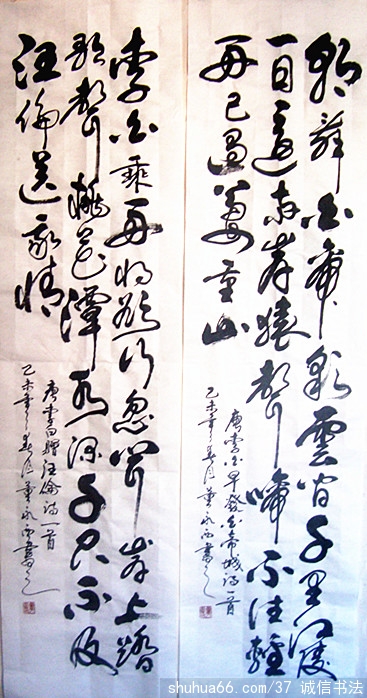 朝辞白帝彩云间千里江陵
一日还两岸猿声啼不住轻
舟已过万重山
唐李白早发白帝城诗一首
乙未年春月董永西书之
李白乘舟将欲行忽闻岸上踏
歌声桃花潭水深千尺不及
汪伦送我情
唐李白赠汪伦诗一首
乙未年春月董永西书之
shuhua66.com/37 诚信书法